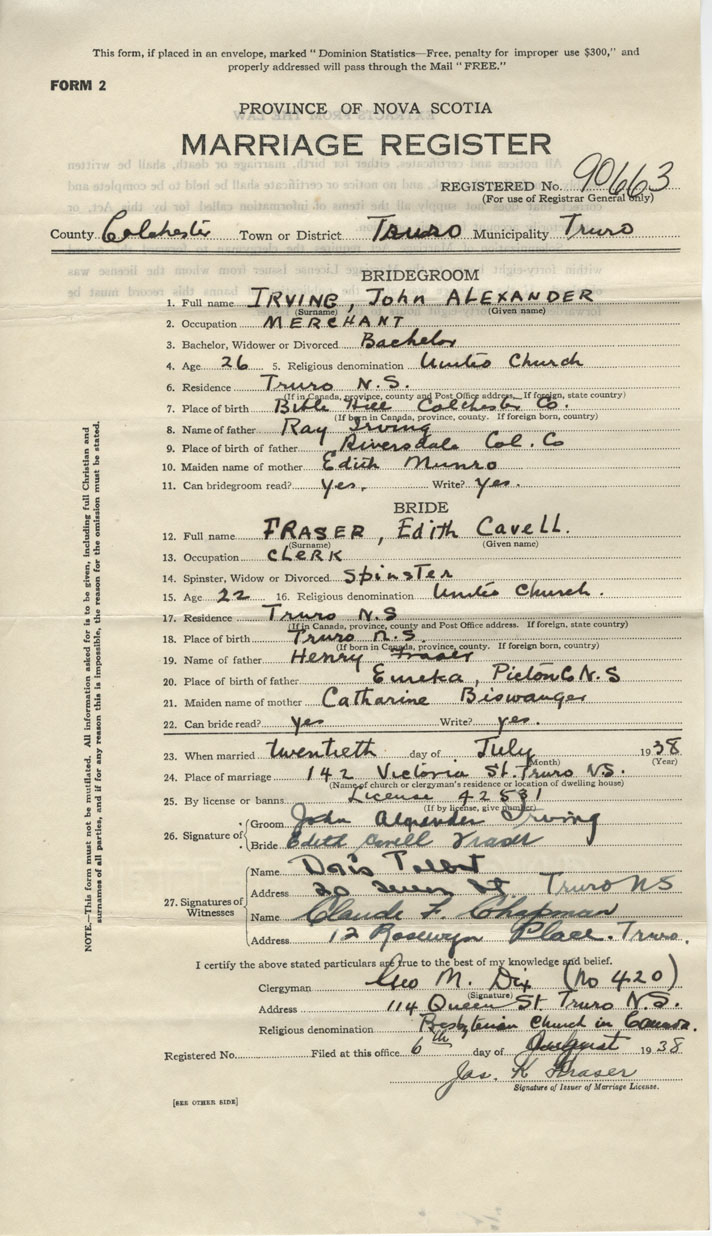 This form, if placed in an envelope, marked "Dominion Statistics—Free, penalty for improper use $300," and
properly addressed will pass through the Mail "FREE."
FORM 2
PROVINCE OF NOVA SCOTIA
MARRIAGE REGISTER
REGISTERED No. 90663
(For use of Registrar General only)
County Colchester Town or District Truro Municipality Truro
BRIDEGROOM
1. Full name IRVING, John ALEXANDER
(Surname) (Given name)
2. Occupation MERCHANT
3. Bachelor, Widower or Divorced Bachelor
4. Age 26 5. Religious denomination United Church
6. Residence Truro N.S.
(If in Canada, province, county and Post Office address. If foreign, state country)
7. Place of birth Bible Hill Colchester Co.
(If born in Canada, province, county. If foreign born, country)
8. Name of father Ray Irving
9. Place of birth of father Riversdale Col. Co
10. Maiden name of mother Edith Munro
11. Can bridegroom read? Yes. Write? Yes.
BRIDE
12. Full name FRASER, Edith Cavell.
(Surname) (Given name)
13. Occupation CLERK
14. Spinster, Widow or Divorced Spinster
15. Age 22 16. Religious denomination United Church.
17. Residence Truro N.S
(If in Canada, province, county and Post Office address. If foreign, state country)
18. Place of birth Truro N.S.
(If born in Canada, province, county. If foreign born, country)
19. Name of father Henry Fraser
20. Place of birth of father Eureka, Pictou C N.S
21. Maiden name of mother Catharine Biswanger
22. Can bride read? yes Write? yes.
23. When married twentieth day of July 1938
(Month) (Year)
24. Place of marriage 142 Victoria St. Truro N.S.
(Name of church or clergyman's residence or location of dwelling house)
25. By license or banns License 42531
(If by license, give number)
26. Signature of Groom John Alexander Irving
Bride Edith Cavell Fraser
27. Signatures of Witnesses Name Doris Talbot
Address St Truro NS
Name Claude F. Chapman
Address 12 Rosewyn Place. Truro.
I certify the above stated particulars are true to the best of my knowledge and belief.
Clergyman Geo M. Dix (No 420)
(Signature)
Address 114 Queen St. Truro N.S.
Religious denomination Presbyterian Church in Canada.
Registered No. Filed at this office 6th day of August 1938
Jas. K Fraser
Signature of Issuer of Marriage License.
[SEE OTHER SIDE]
NOTE.—This form must not be mutilated. All information asked for is to be given, including full Christian and
surnames of all parties, and if for any reason this is impossible, the reason for the omission must be stated.